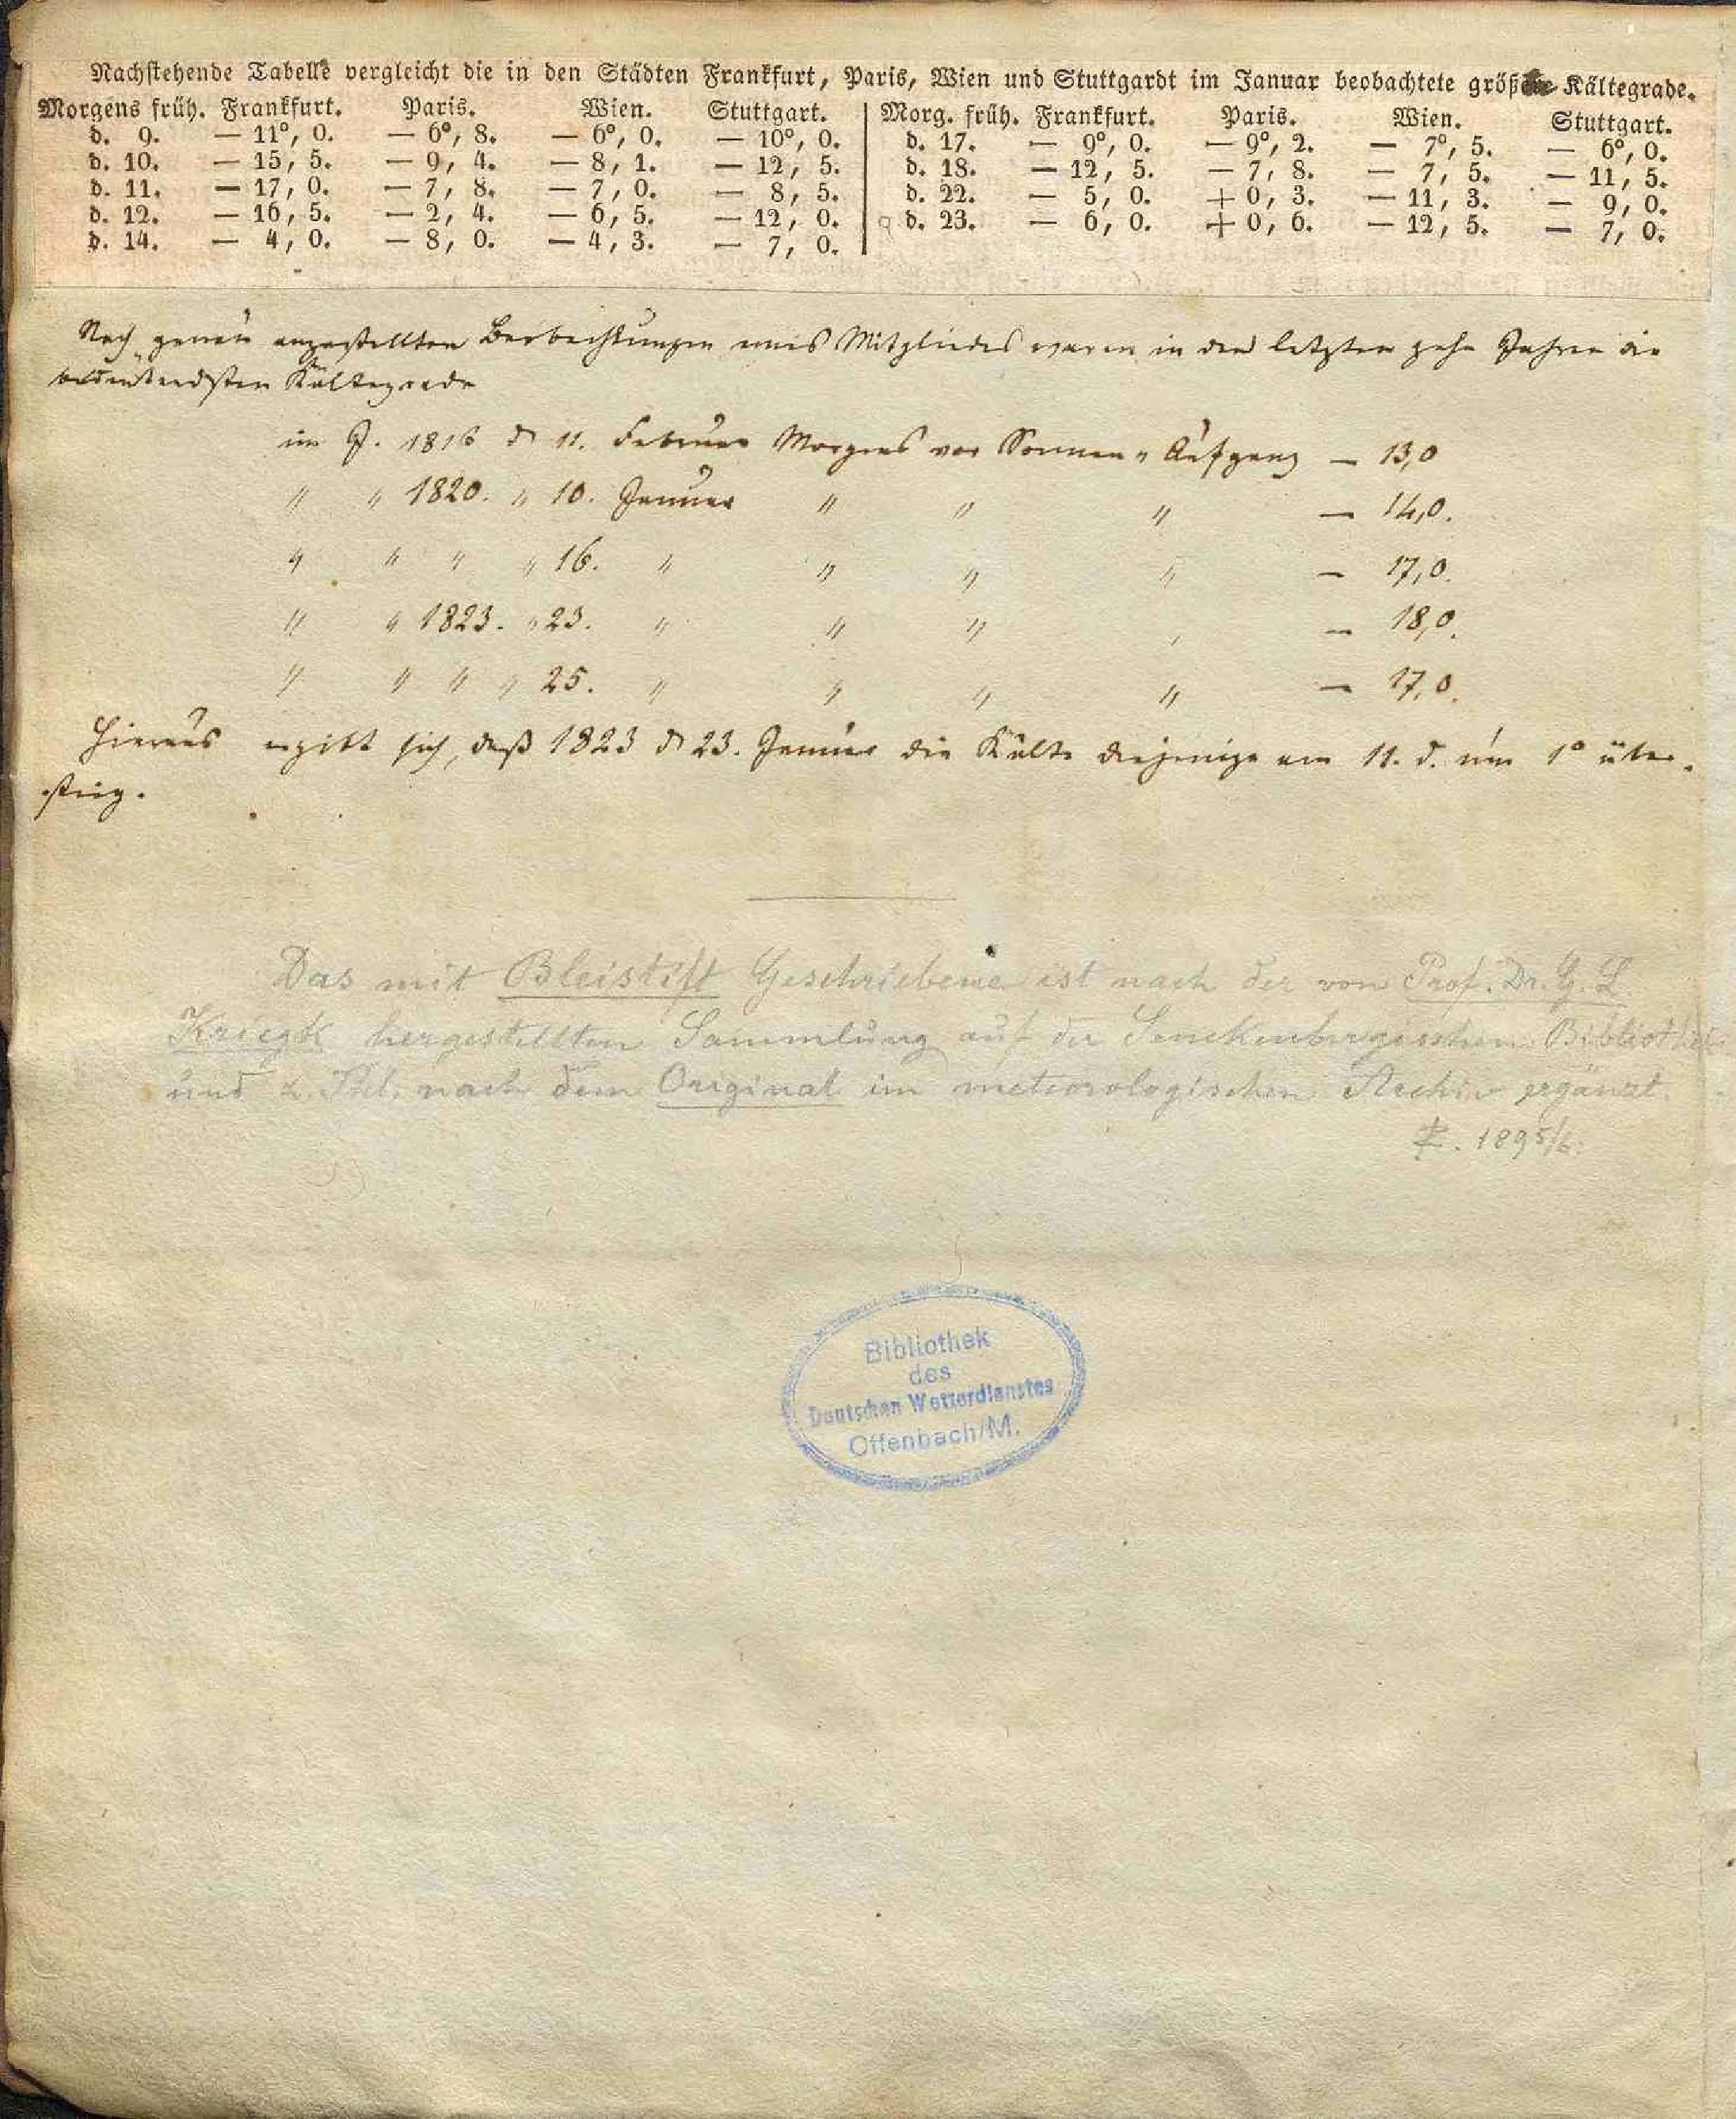 Nachstehende Tabelle vergleicht die in den Städten Frankfurt, Paris, Wien und Stuttgardt im Januar beobachtete Kältegrade.
Morgens früh. Frankfurt. Paris. Wien. Stuttgart. | Morg. früh. Frankfurt. Paris. Wien. Stuttgart.
d. 9. — 11°, 0. — 6°, 8. — 6°, 0. — 10°, 0. | d. 17. — 9°, 0. — 9°, 2. — 7°, 5. — 6°, 0.
d. 10. — 15, 5. — 9, 4. — 8, 1. — 12, 5. | d. 18. — 12, 5. — 7, 8. — 7, 5. — 11, 5.
d. 11. — 17, 0. — 7, 8. — 7, 0. — 8, 5. | d. 22. — 5, 0. + 0, 3. — 11, 3. — 9, 0.
d. 12. — 16, 5. — 2, 4. — 6, 5. — 12, 0. | d. 23. — 6, 0. + 0, 6. — 12, 5. — 7, 0.
d. 14. — 4, 0. — 8, 0. — 4, 3. — 7, 0.
Nach genau angestellten Beobachtungen eines Mitgliedes waren in den letzten zehn Jahren die
bedeutendsten Kältegrade
im J. 1816 d 11. Februar Morgens vor Sonnen " Aufgang — 13,0
" " 1820. " 10. Januar " " " — 14,0.
" " " " 16. " " " " — 17,0.
" " 1823. " 23. " " " " — 18,0.
" " " " 25. " " " " — 17,0.
Hieraus ergibt sich, daß 1823 d 23. Januar die Kälte diejenige am 11. d. um 1° über-
stieg.
Das mit Bleistift Geschriebene ist nach der von Prof. Dr. G. L.
Kriegk hergestellten Sammlung auf der Senckenbergischen Bibliothek
und z. Thl. nach dem Original im meteorologischen Archiv ergänzt.
1895/6.
Bibliothek
des
Deutschen Wetterdienstes
Offenbach/M.